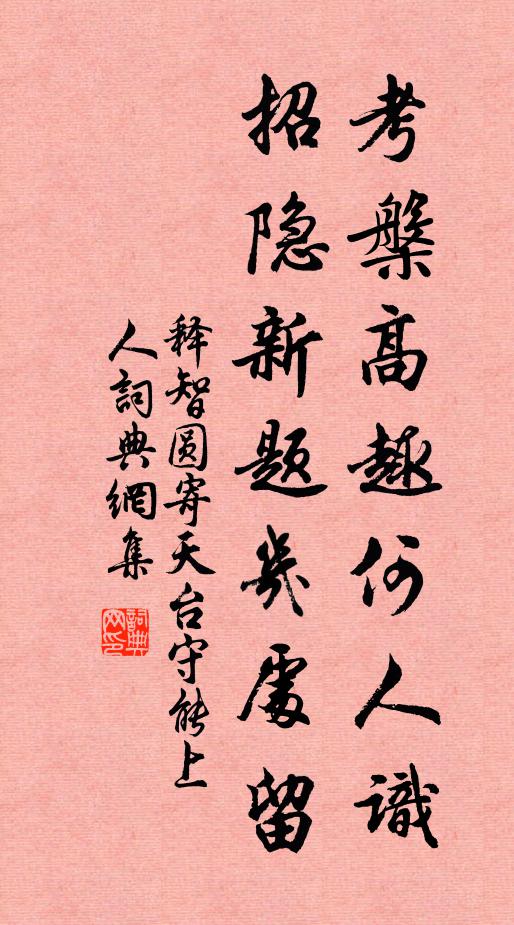 考槃高趣何人識
招隐新题幾處留
释智圆寄天台守能上
人詞典網集
詞典網印